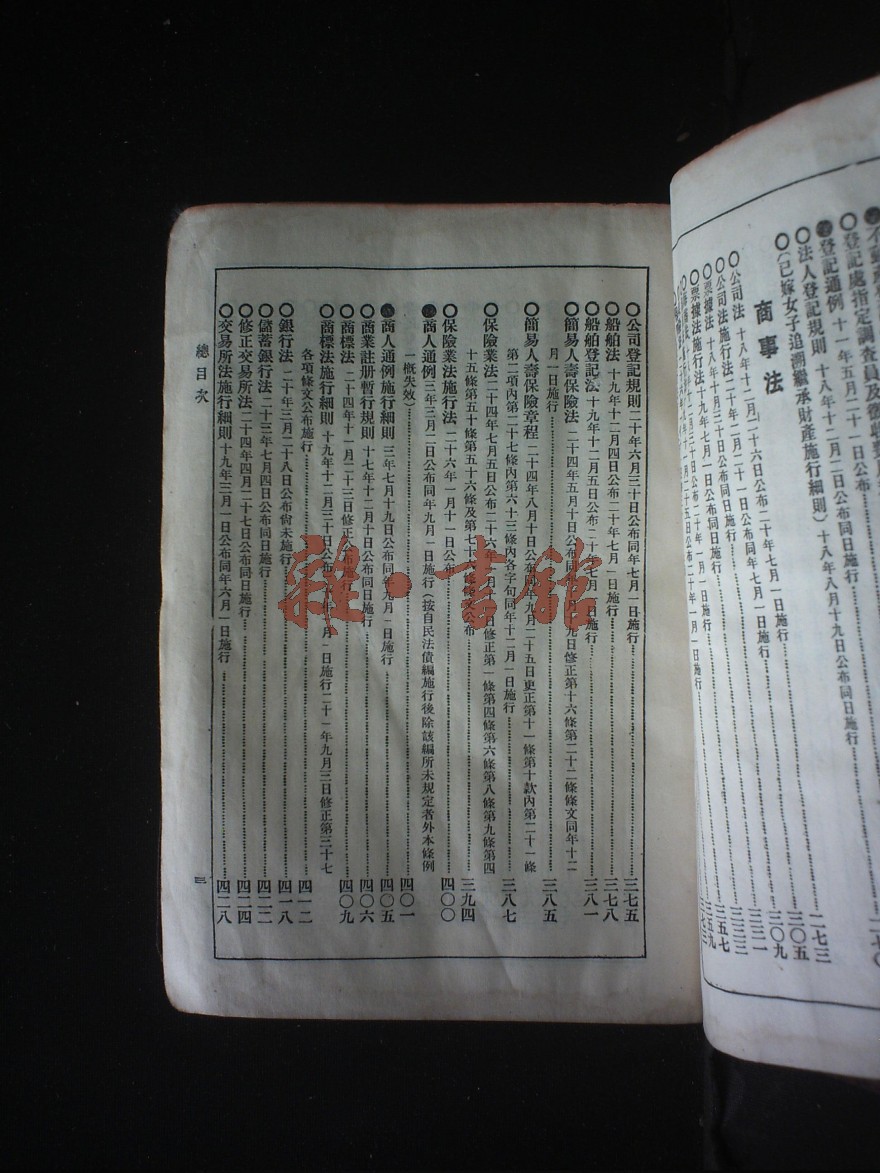 登記處指定調查員及徵收費
登記通例 十一年五月二十一日公布同日施行 二七三
〇法人登記規則 十八年十二月二日公布同日施行 三〇五
〇(已嫁女子追溯繼承財產施行細則)十八年八月十九日公布同日施行 三〇九
商事法
〇公司法 十八年十二月二十六日公布二十年七月一日施行 三二一
〇公司法施行法 二十年二月二十一日公布同年七月一日施行
〇票據法 十八年十月三十日公布同日施行 三五七
〇票據法施行法 十九年七月一日公布同日施行 三五九
〇公司登記規則 二十年六月三十日公布同年七月一日施行 三七五
〇船舶法 十九年十二月四日公布二十年七月一日施行 三七八
〇船舶登記法 十九年十二月五日公布二十年七月一日施行 三八一
〇簡易人壽保險法 二十四年五月十日公布同年 月 九日修正第十六條第二十二條條文同年十二
月一日施行 三八五
〇簡易人壽保險章程 二十四年八月十日公布同年九月二十五日更正第十一條第十款內第二十一條
第二項內第二十七條內第六十三條內各字句同年十二月一日施行 三八七
〇保險業法 二十四年七月五日公布二十六年一月十一日修正第一條第四條第六條第八條第九條第四
十五條第五十條第五十六條及第七十六條條文公布 三九四
〇保險業法施行法 二十六年一月十一日公布 四〇〇
商人通例 三年三月二日公布同年九月一日施行(按自民法債編施行後除該編所未規定者外本條例
一概失效) 四〇一
商人通例施行細則 三年七月十九日公布同年九月一日施行 四〇五
〇商業註册暫行規則 十七年十二月十日公布同日施行 四〇六
〇商標法 二十四年十一月二十三日修正公布施行 四〇九
〇商標法施行細則 十九年十二月三十日公布 年 月一日施行二十一年九月三日修正第三十七
各項條文公布施行 四一二
〇銀行法 二十年三月二十八日公布尙未施行 四一八
〇儲蓄銀行法 二十三年七月四日公布同日施行 四二二
〇修正交易所法 二十四年四月二十七日公布同日施行 四二四
〇交易所法施行細則 十九年三月一日公布同年六月一日施行 四二八
總目次
三
雜·書館